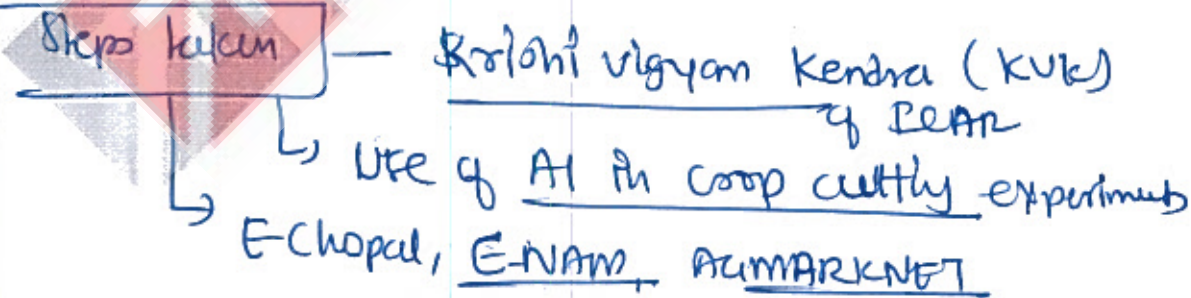 Steps taken — Krishi Vigyan Kendra (KVK)
of ICAR
Use of AI in crop cutting experiments
E-Chopal, E-NAM, AGMARKNET